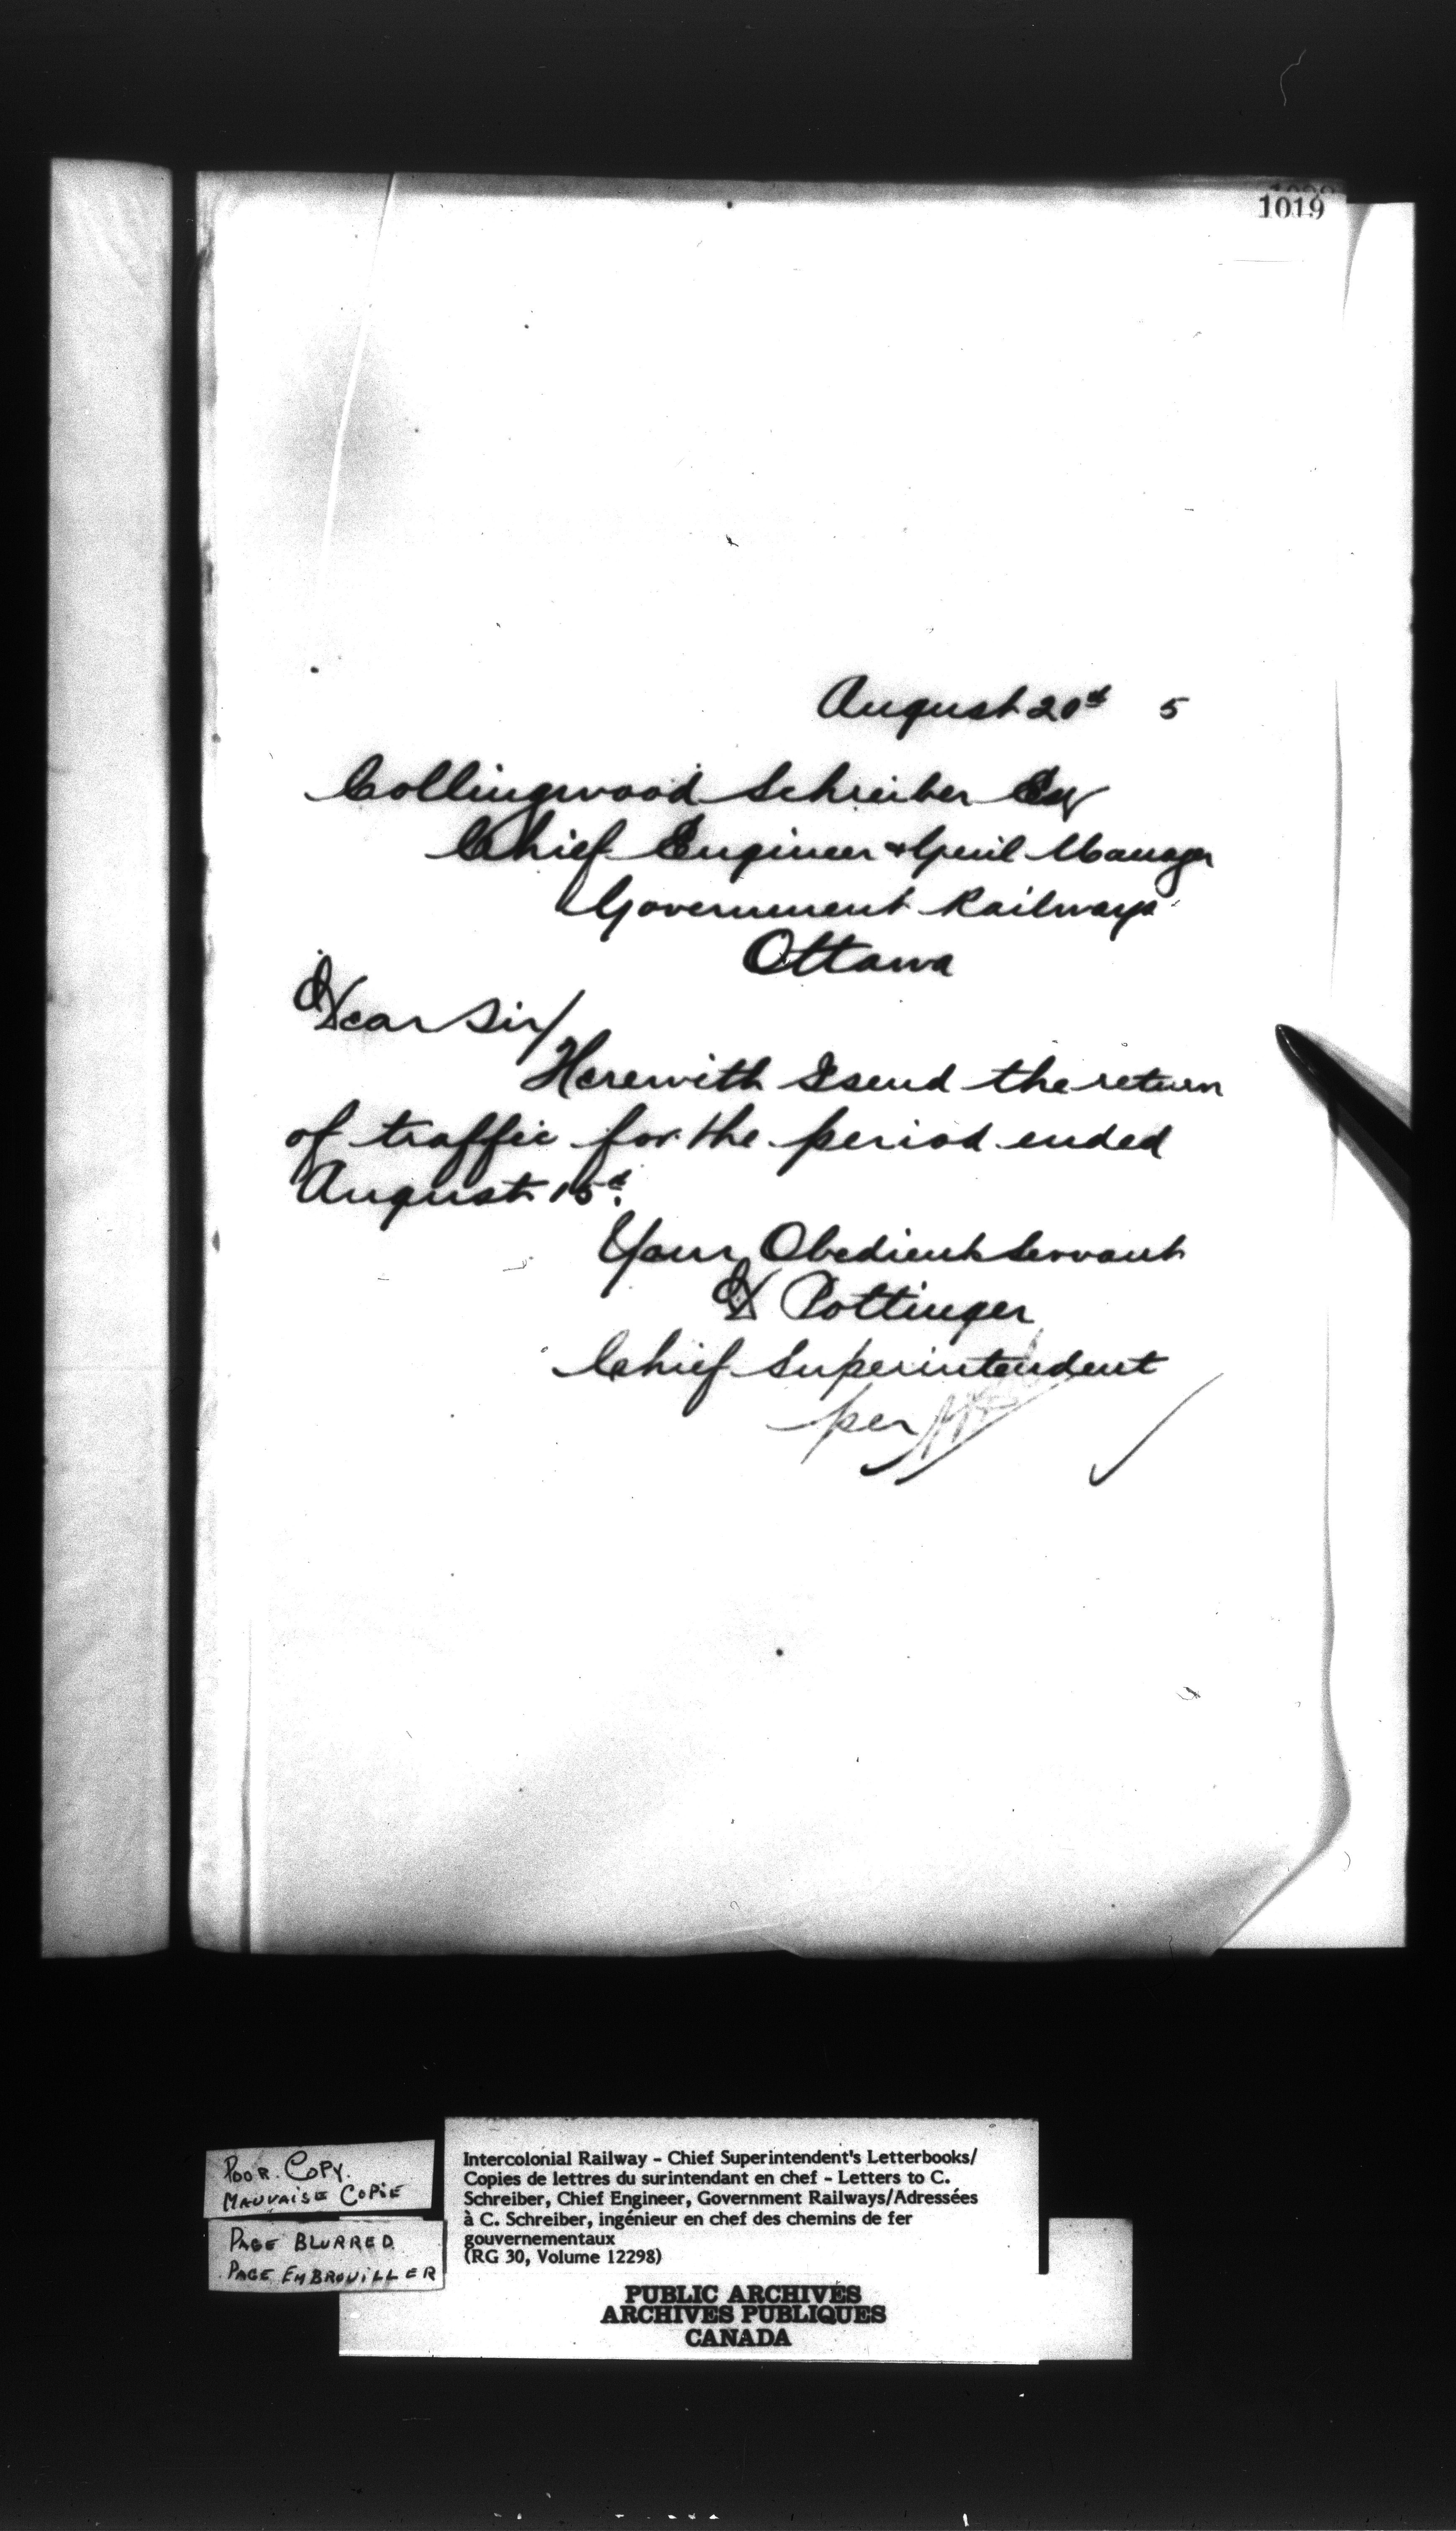 1019
August 20th 5
Collingwood Schreiber Esq
Chief Engineer & Genl Manager
Government Railways
Ottawa
Dear Sir/
Herewith I send the return
of traffic for the period ended
August 15th.
Your Obedient Servant
D Pottinger
Chief Superintendent
per
POOR COPY.
MAUVAISE COPIE
PAGE BLURRED
PAGE EMBROUILLER
Intercolonial Railway - Chief Superintendent's Letterbooks/
Copies de lettres du surintendant en chef - Letters to C.
Schreiber, Chief Engineer, Government Railways/Adressées
à C. Schreiber, ingénieur en chef des chemins de fer
gouvernementaux
(RG 30, Volume 12298)
PUBLIC ARCHIVES
ARCHIVES PUBLIQUES
CANADA